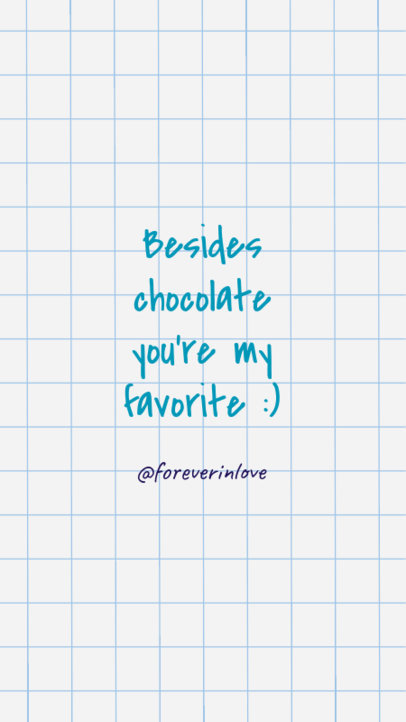 Besides
chocolate
you're my
favorite :)
@foreverinlove